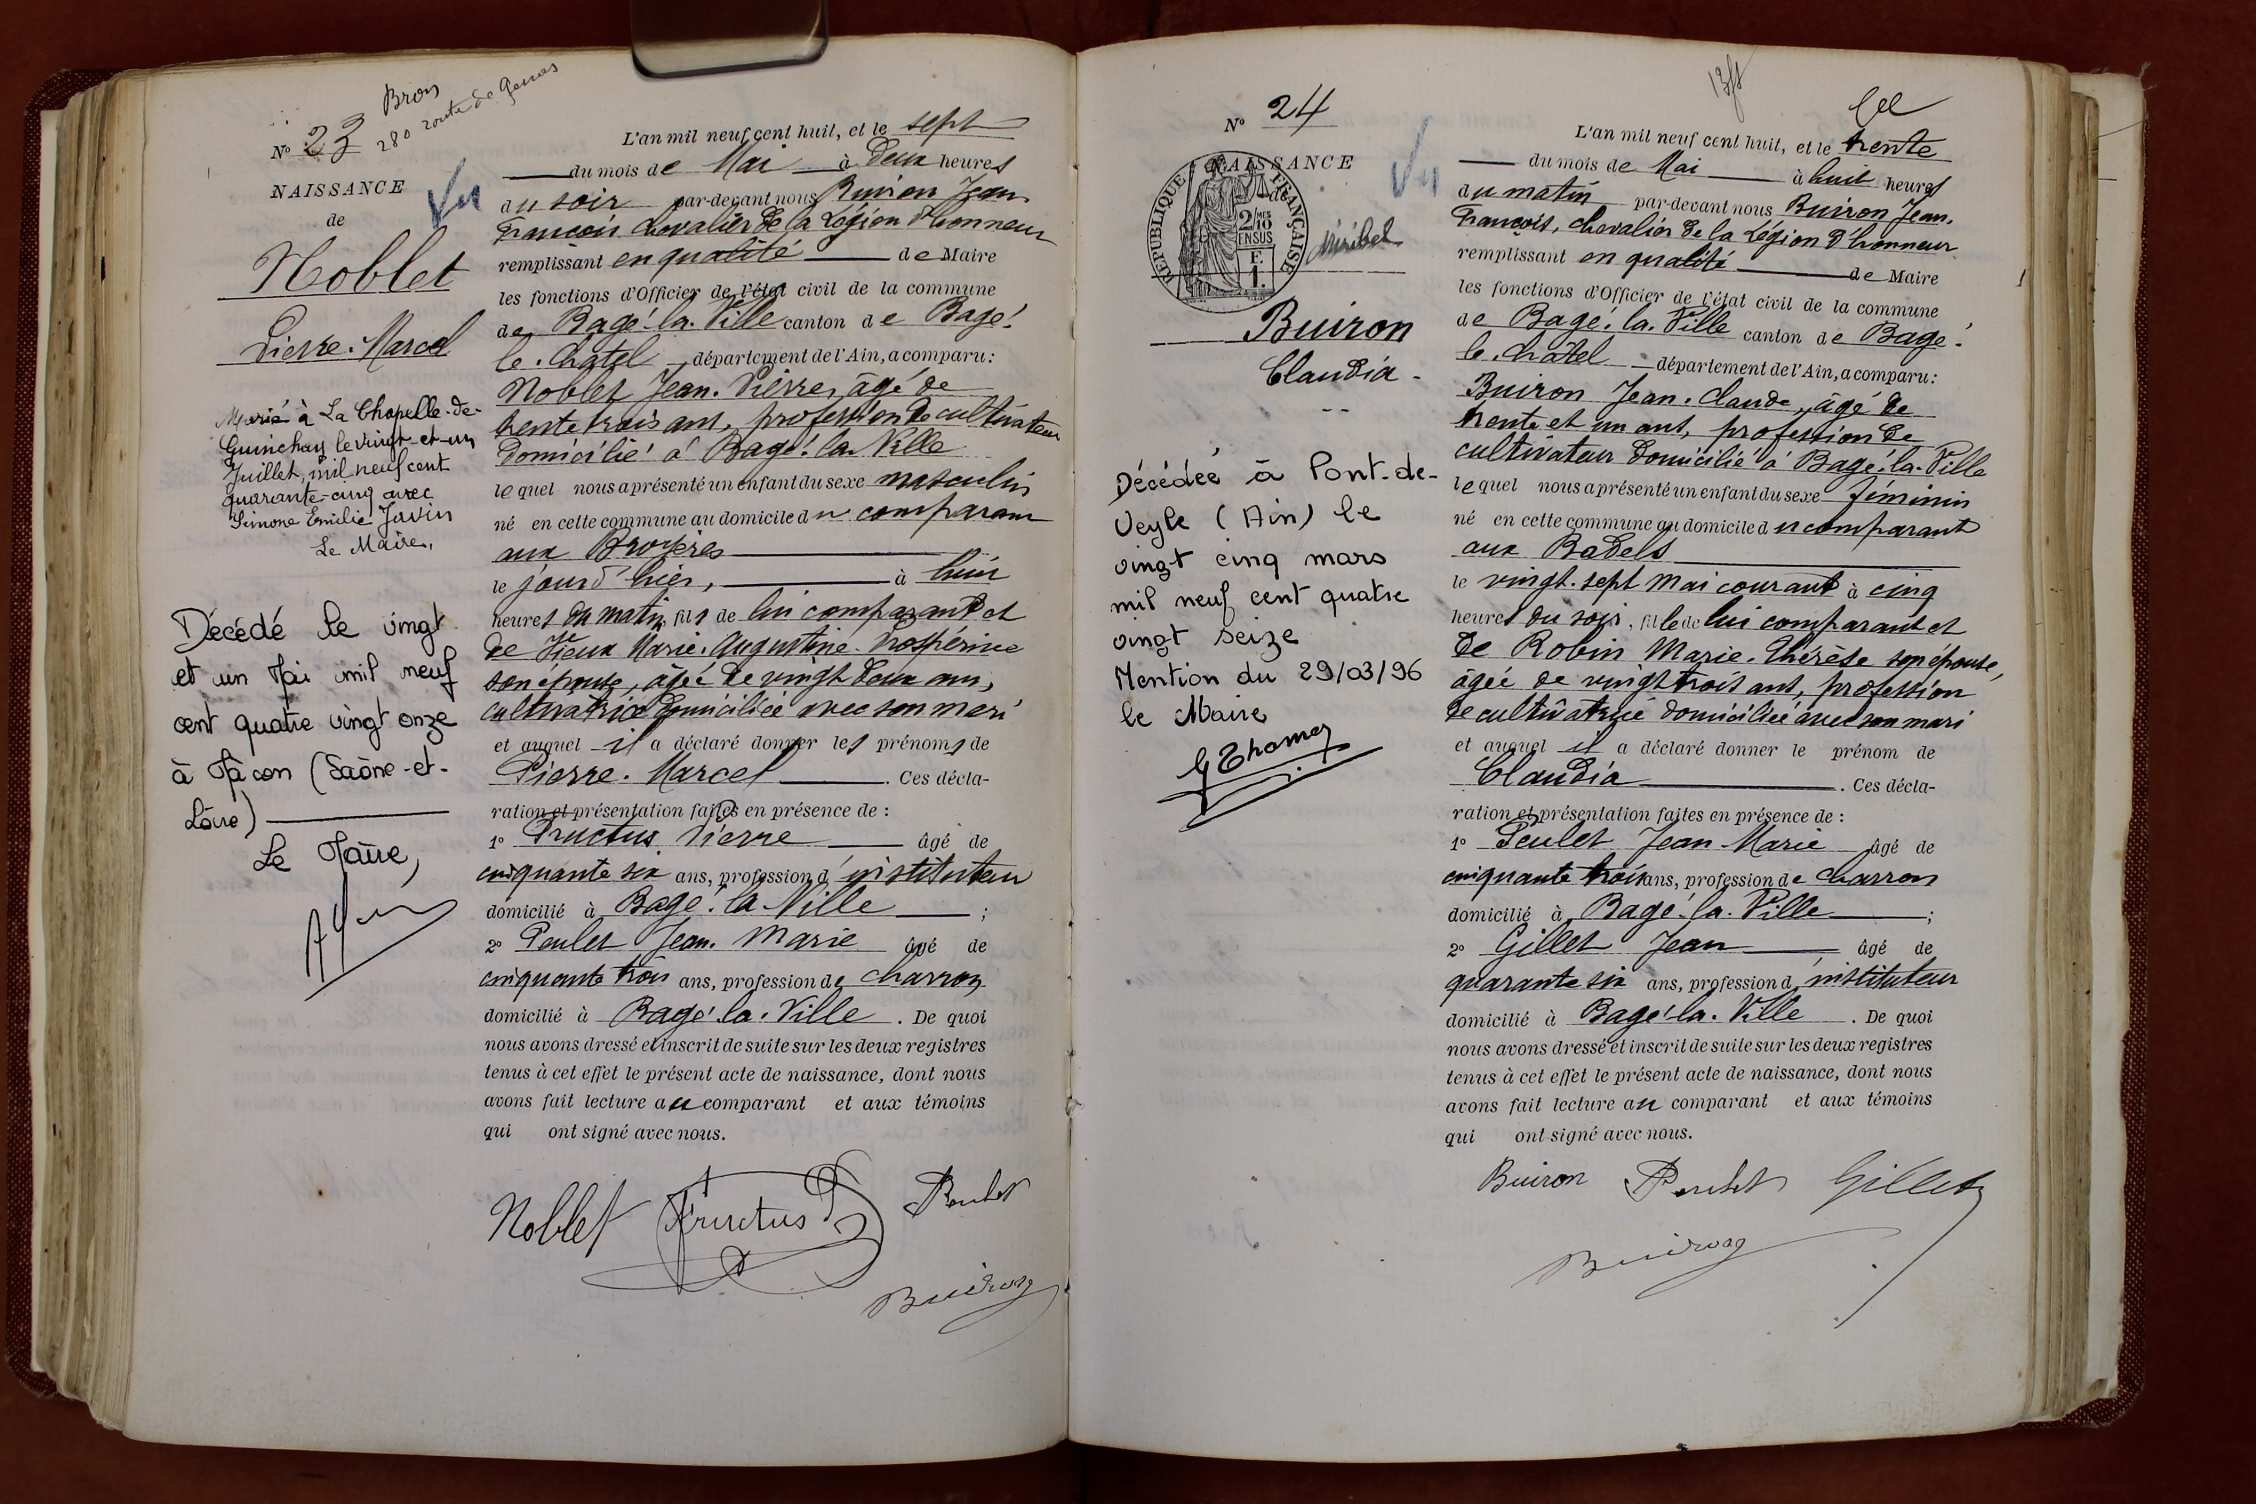 Bron
280 route de Genas
N° 23
NAISSANCE
de
Vu
Noblet
Pierre. Marcel
Marié à La Chapelle-de-
Guinchay le vingt-et-un
Juillet, mil neuf cent
quarante-cinq avec
Simone Emilie Javin
Le Maire,
Décédé le vingt
et un Mai mil neuf
cent quatre vingt onze
à Mâcon (Saône-et-
Loire)
Le Maire,
L'an mil neuf cent huit, et le sept
du mois de Mai à deux heures
du soir par-devant nous Buiron Jean
François chevalier de la Légion d'honneur
remplissant en qualité de Maire
les fonctions d'Officier de l'état civil de la commune
de Bagé-la-Ville canton de Bagé-
le-Châtel département de l'Ain, a comparu:
Noblet Jean-Pierre, âgé de
trente trois ans, profession de cultivateur
domicilié à Bagé-la-Ville
lequel nous a présenté un enfant du sexe masculin
né en cette commune au domicile du comparant
aux Broyères
le jour d'hier, à huit
heures du matin, fils de lui comparant et
de Vieux Marie-Augustine-Prospérine
son épouse, âgée de vingt deux ans,
cultivatrice domiciliée avec son mari
et auquel il a déclaré donner les prénoms de
Pierre-Marcel. Ces décla-
ration et présentation faites en présence de :
1° Fructus Pierre âgé de
cinquante six ans, profession d'instituteur
domicilié à Bagé-la-Ville ;
2° Peulet Jean-Marie âgé de
cinquante trois ans, profession de charron
domicilié à Bagé-la-Ville. De quoi
nous avons dressé et inscrit de suite sur les deux registres
tenus à cet effet le présent acte de naissance, dont nous
avons fait lecture au comparant et aux témoins
qui ont signé avec nous.
Noblet Fructus P Peulet
Buiron
N° 24
NAISSANCE
de
RÉPUBLIQUE FRANÇAISE
2/10 MES
EN SUS
F.
1.
Vu
Miribel
Buiron
Claudia -
Décédée à Pont-de-
Veyle (Ain) le
vingt cinq mars
mil neuf cent quatre
vingt seize
Mention du 29/03/96
le Maire
L'an mil neuf cent huit, et le trente
du mois de Mai à huit heures
du matin par-devant nous Buiron Jean-
François, chevalier de la Légion d'honneur
remplissant en qualité de Maire
les fonctions d'Officier de l'état civil de la commune
de Bagé-la-Ville canton de Bagé-
le-Châtel département de l'Ain, a comparu:
Buiron Jean-Claude, âgé de
trente et un ans, profession de
cultivateur domicilié à Bagé-la-Ville
lequel nous a présenté un enfant du sexe féminin
né en cette commune au domicile du comparant
aux Badels
le vingt-sept mai courant à cinq
heures du soir, fille de lui comparant et
de Robin Marie-Thérèse son épouse,
âgée de vingt trois ans, profession
de cultivatrice domiciliée avec son mari
et auquel il a déclaré donner le prénom de
Claudia. Ces décla-
ration et présentation faites en présence de :
1° Peulet Jean Marie âgé de
cinquante trois ans, profession de charron
domicilié à Bagé-la-Ville ;
2° Gillet Jean âgé de
quarante six ans, profession d'instituteur
domicilié à Bagé-la-Ville. De quoi
nous avons dressé et inscrit de suite sur les deux registres
tenus à cet effet le présent acte de naissance, dont nous
avons fait lecture au comparant et aux témoins
qui ont signé avec nous.
Buiron Peulet Gillet
Buiron